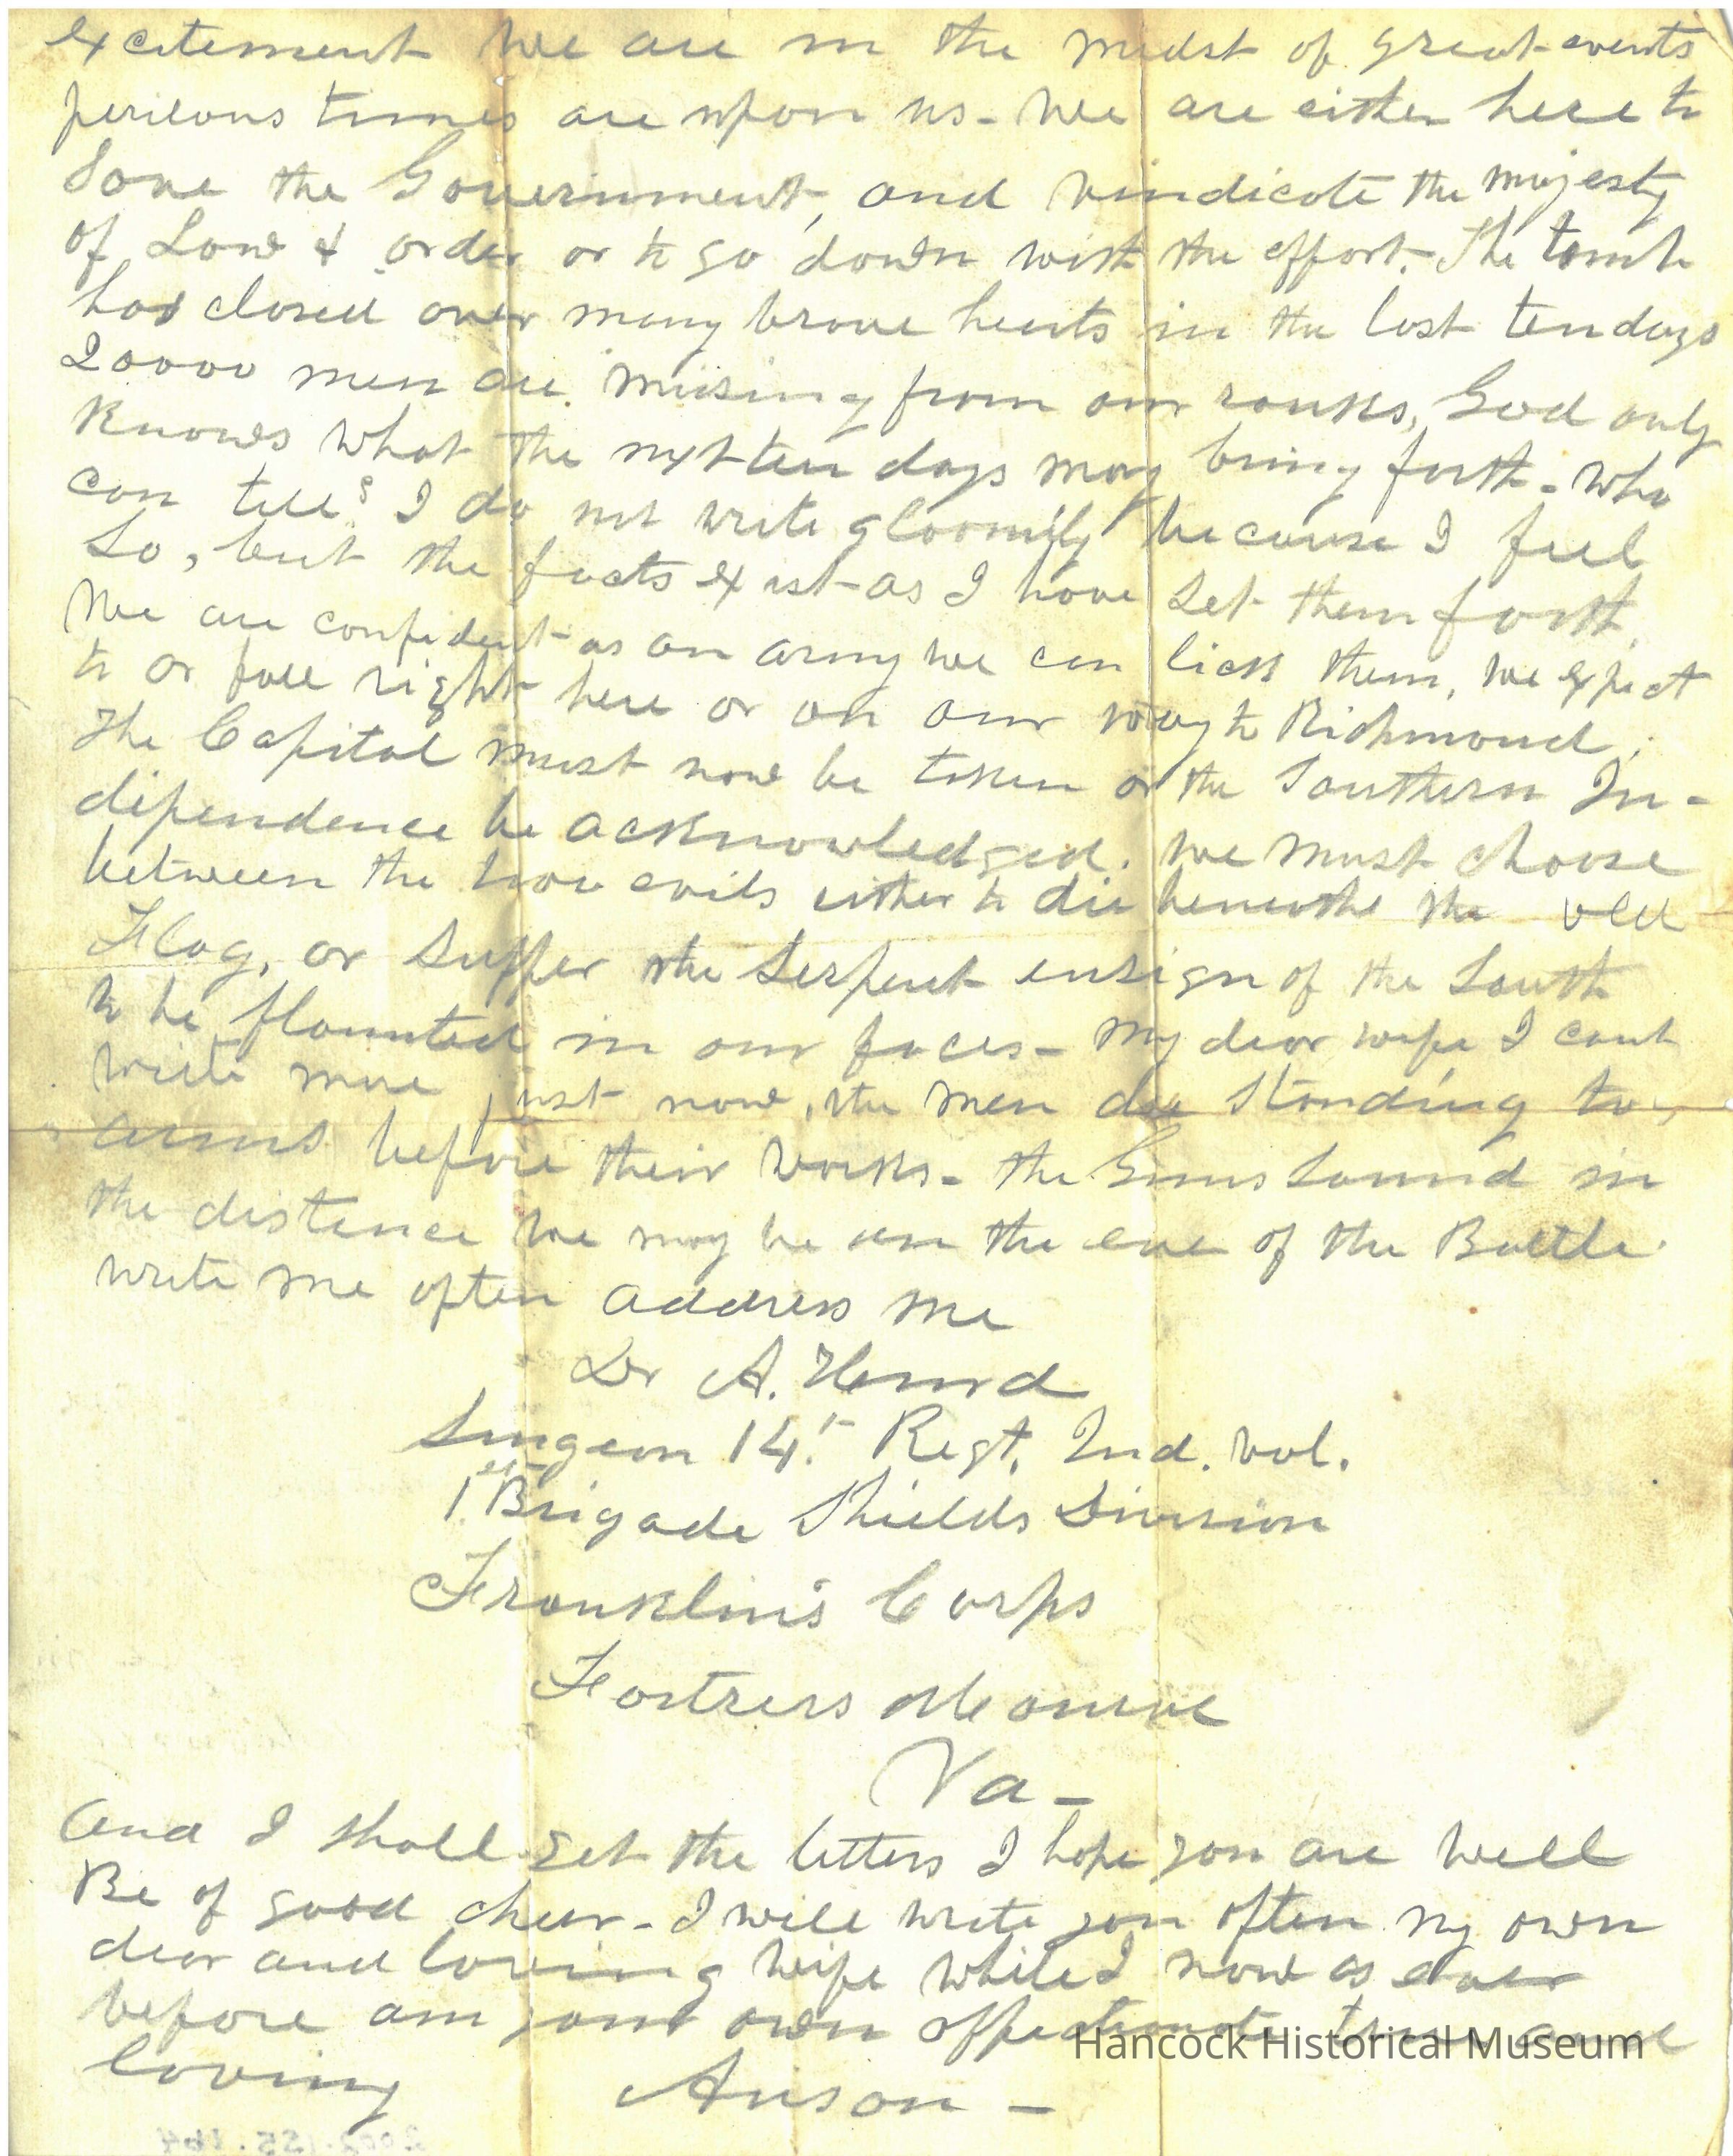 excitement We are in the midst of great events
perilous times are upon us - We are either here to
Save the Government, and vindicate the majesty
of Law & order or to go down with the effort. The tomb
has closed over many brave hearts in the last ten days
20000 men are missing from our ranks, God only
Knows what the next ten days may bring forth - Who
can tell? I do not write gloomily because I feel
So, but the facts exist as I have set them forth.
We are confident as an army we can lick them, we expect
to or fall right here or on our way to Richmond.
The Capital must now be taken or the Southern In-
dependence be acknowledged. We must choose
between the two evils either to die beneathe the old
Flag, or suffer the Serpent ensign of the South
to be flaunted in our faces - My dear wife I cant
write more just now, the men are standing to
arms before their works - the Guns sound in
the distance We may be on the eve of the Battle.
Write me often address me
Dr A. Hurd
Surgeon 14th Regt. Ind. Vol.
1st Brigade Shields Division
Franklin's Corps
Fortress Monroe
Va -
And I shall get the letters I hope you are well
Be of good cheer - I will write you often my own
dear and loving wife while I now as ever
before am your own affectionate true and
loving Anson -
Hancock Historical Museum